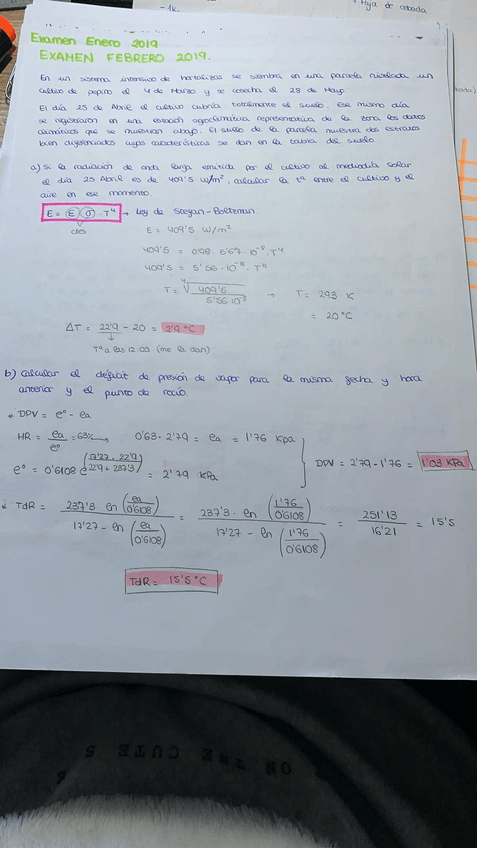 - 1k.
Hya de cebada
Examen Enero 2019
EXAMEN FEBRERO 2019.
En un sistema intensivo de hortalizas se siembra en una parcela nivelada un
cultivo de pepino el 4 de Marzo y se cosecha el 28 de Mayo.
El día 25 de Abril el cultivo cubría totalmente el suelo. Ese mismo día
se registraron en una estación agroclimática representativa de la zona los datos
climáticos que se muestran abajo. El suelo de la parcela muestra dos estratos
bien diferenciados cuyas características se dan en la tabla del suelo
a) Si la radiación de onda larga emitida por el cultivo al mediodía solar
el día 25 Abril es de 409'5 W/m², calcular la tª entre el cultivo y el
aire en ese momento.
E = ε σ · T⁴ → Ley de Stegan-Boltzman.
E = 409'5 W/m²
ctes
409'5 = 0'98 · 5'67 · 10⁻⁸ · T⁴
409'5 = 5'56 · 10⁻⁸ · T⁴
T = ⁴√(409'5 / 5'56·10⁻⁸) → T = 293 K
= 20°C
ΔT = 22'9 - 20 = 2'9 °C
Tª a las 12:00 (me la dan)
b) Calcular el déficit de presión de vapor para la misma fecha y hora
anterior y el punto de rocío.
* DPV = eº - ea
HR = ea/eº = 63% → 0'63 · 2'79 = ea = 1'76 kPa
eº = 0'6108 e^(17'27 · 22'9 / 22'9 + 237'3) = 2'79 kPa
DPV = 2'79 - 1'76 = 1'03 kPa
* TdR = 237'3 ln (ea/0'6108) / 17'27 - ln (ea/0'6108) = 237'3 · ln (1'76/0'6108) / 17'27 - ln (1'76/0'6108) = 251'13 / 16'21 = 15'5
TdR = 15'5 °C
OR THE CUTE S